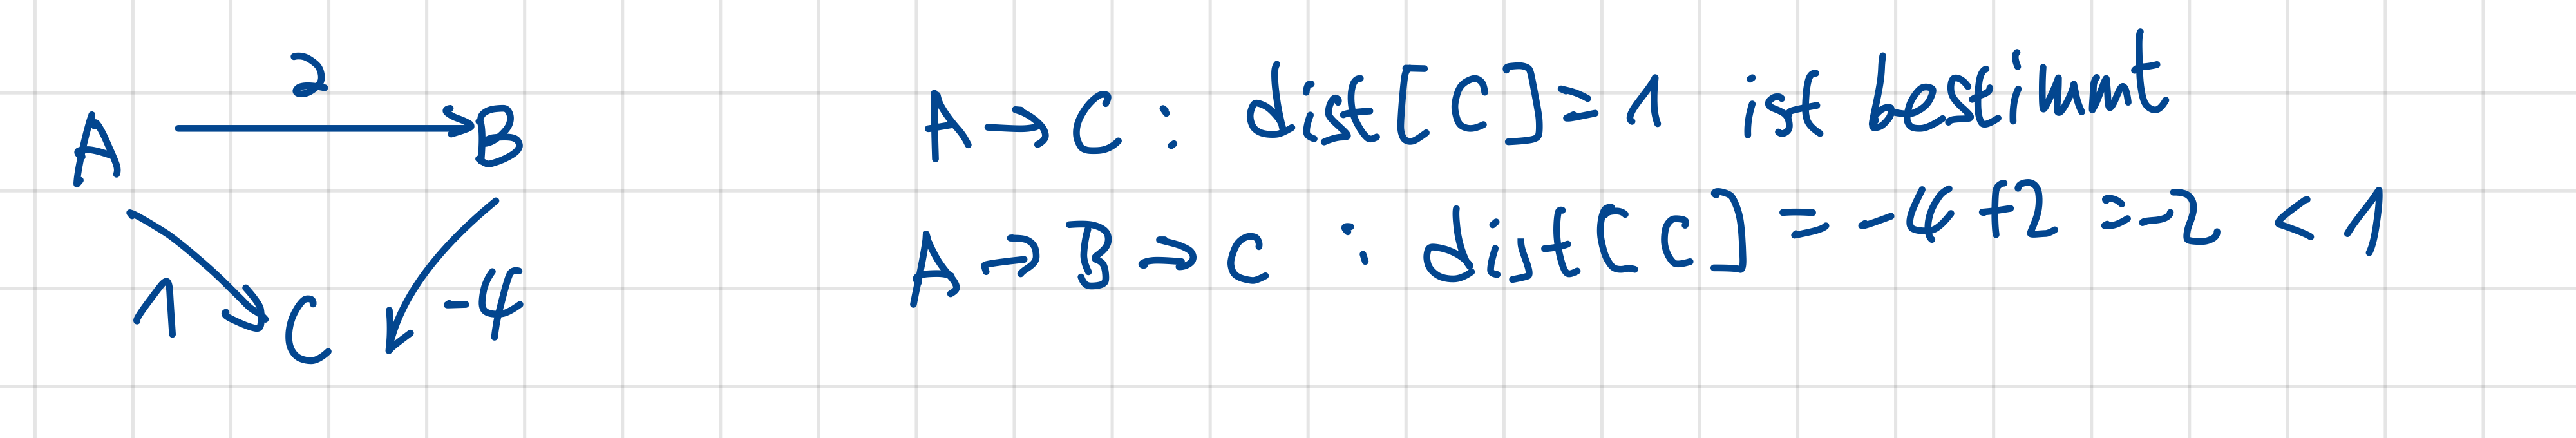 2
A B
A → C : dist[C] = 1 ist bestimmt
A → B → C : dist[C] = -4 + 2 = -2 < 1
1 C -4